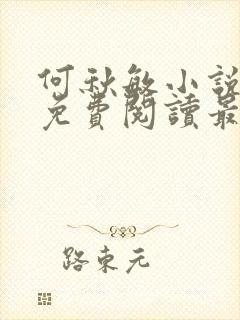 何秋敏小說
免費閱讀最
路東元